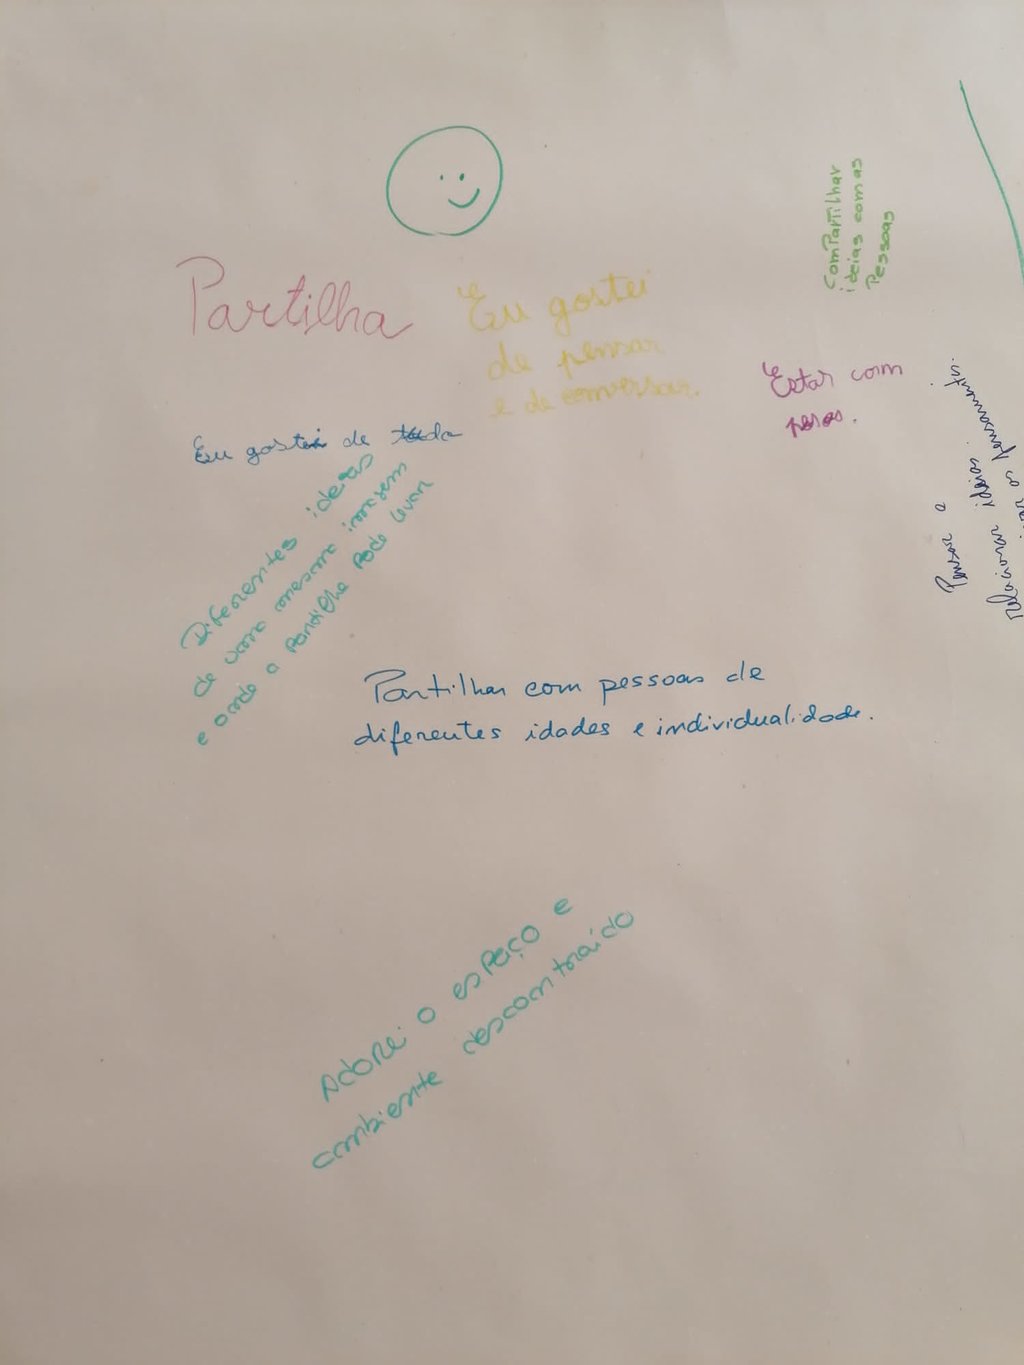 Partilha
Eu gostei
de pensar
e de conversar.
ComPartilhar
ideias com as
Pessoas
Estar com
Eu gostei de tudo
Diferentes ideias
de uma mesma imagem
e onde a partilha pode levar
Pensar e
relacionar ideias.
os pensamentos.
Partilhar com pessoas de
diferentes idades e individualidade.
Adorei o espaço e
ambiente descontraído